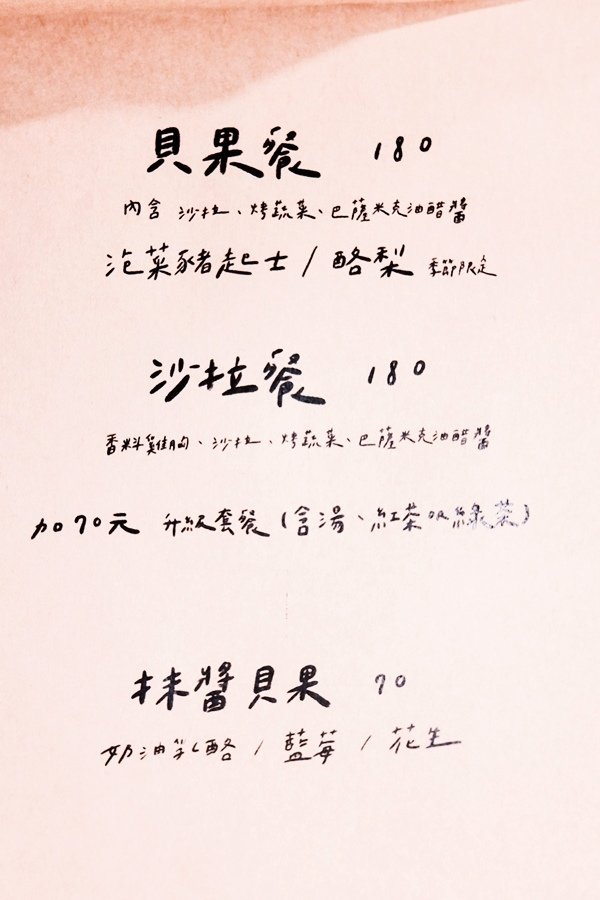 貝果餐 180
內含 沙拉、烤蔬菜、巴薩米克油醋醬
泡菜豬起士 / 酪梨 季節限定
沙拉餐 180
香料雞胸、沙拉、烤蔬菜、巴薩米克油醋醬
加70元 升級套餐(含湯、紅茶or綠茶)
抹醬貝果 70
奶油乳酪 / 藍莓 / 花生